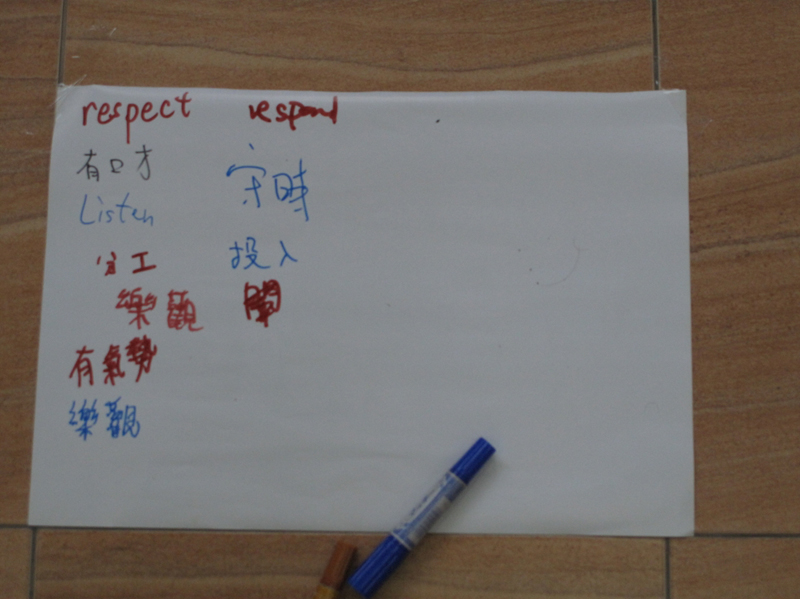 respect
有口才
Listen
分工
樂觀
有氣勢
樂觀
respond
守時
投入